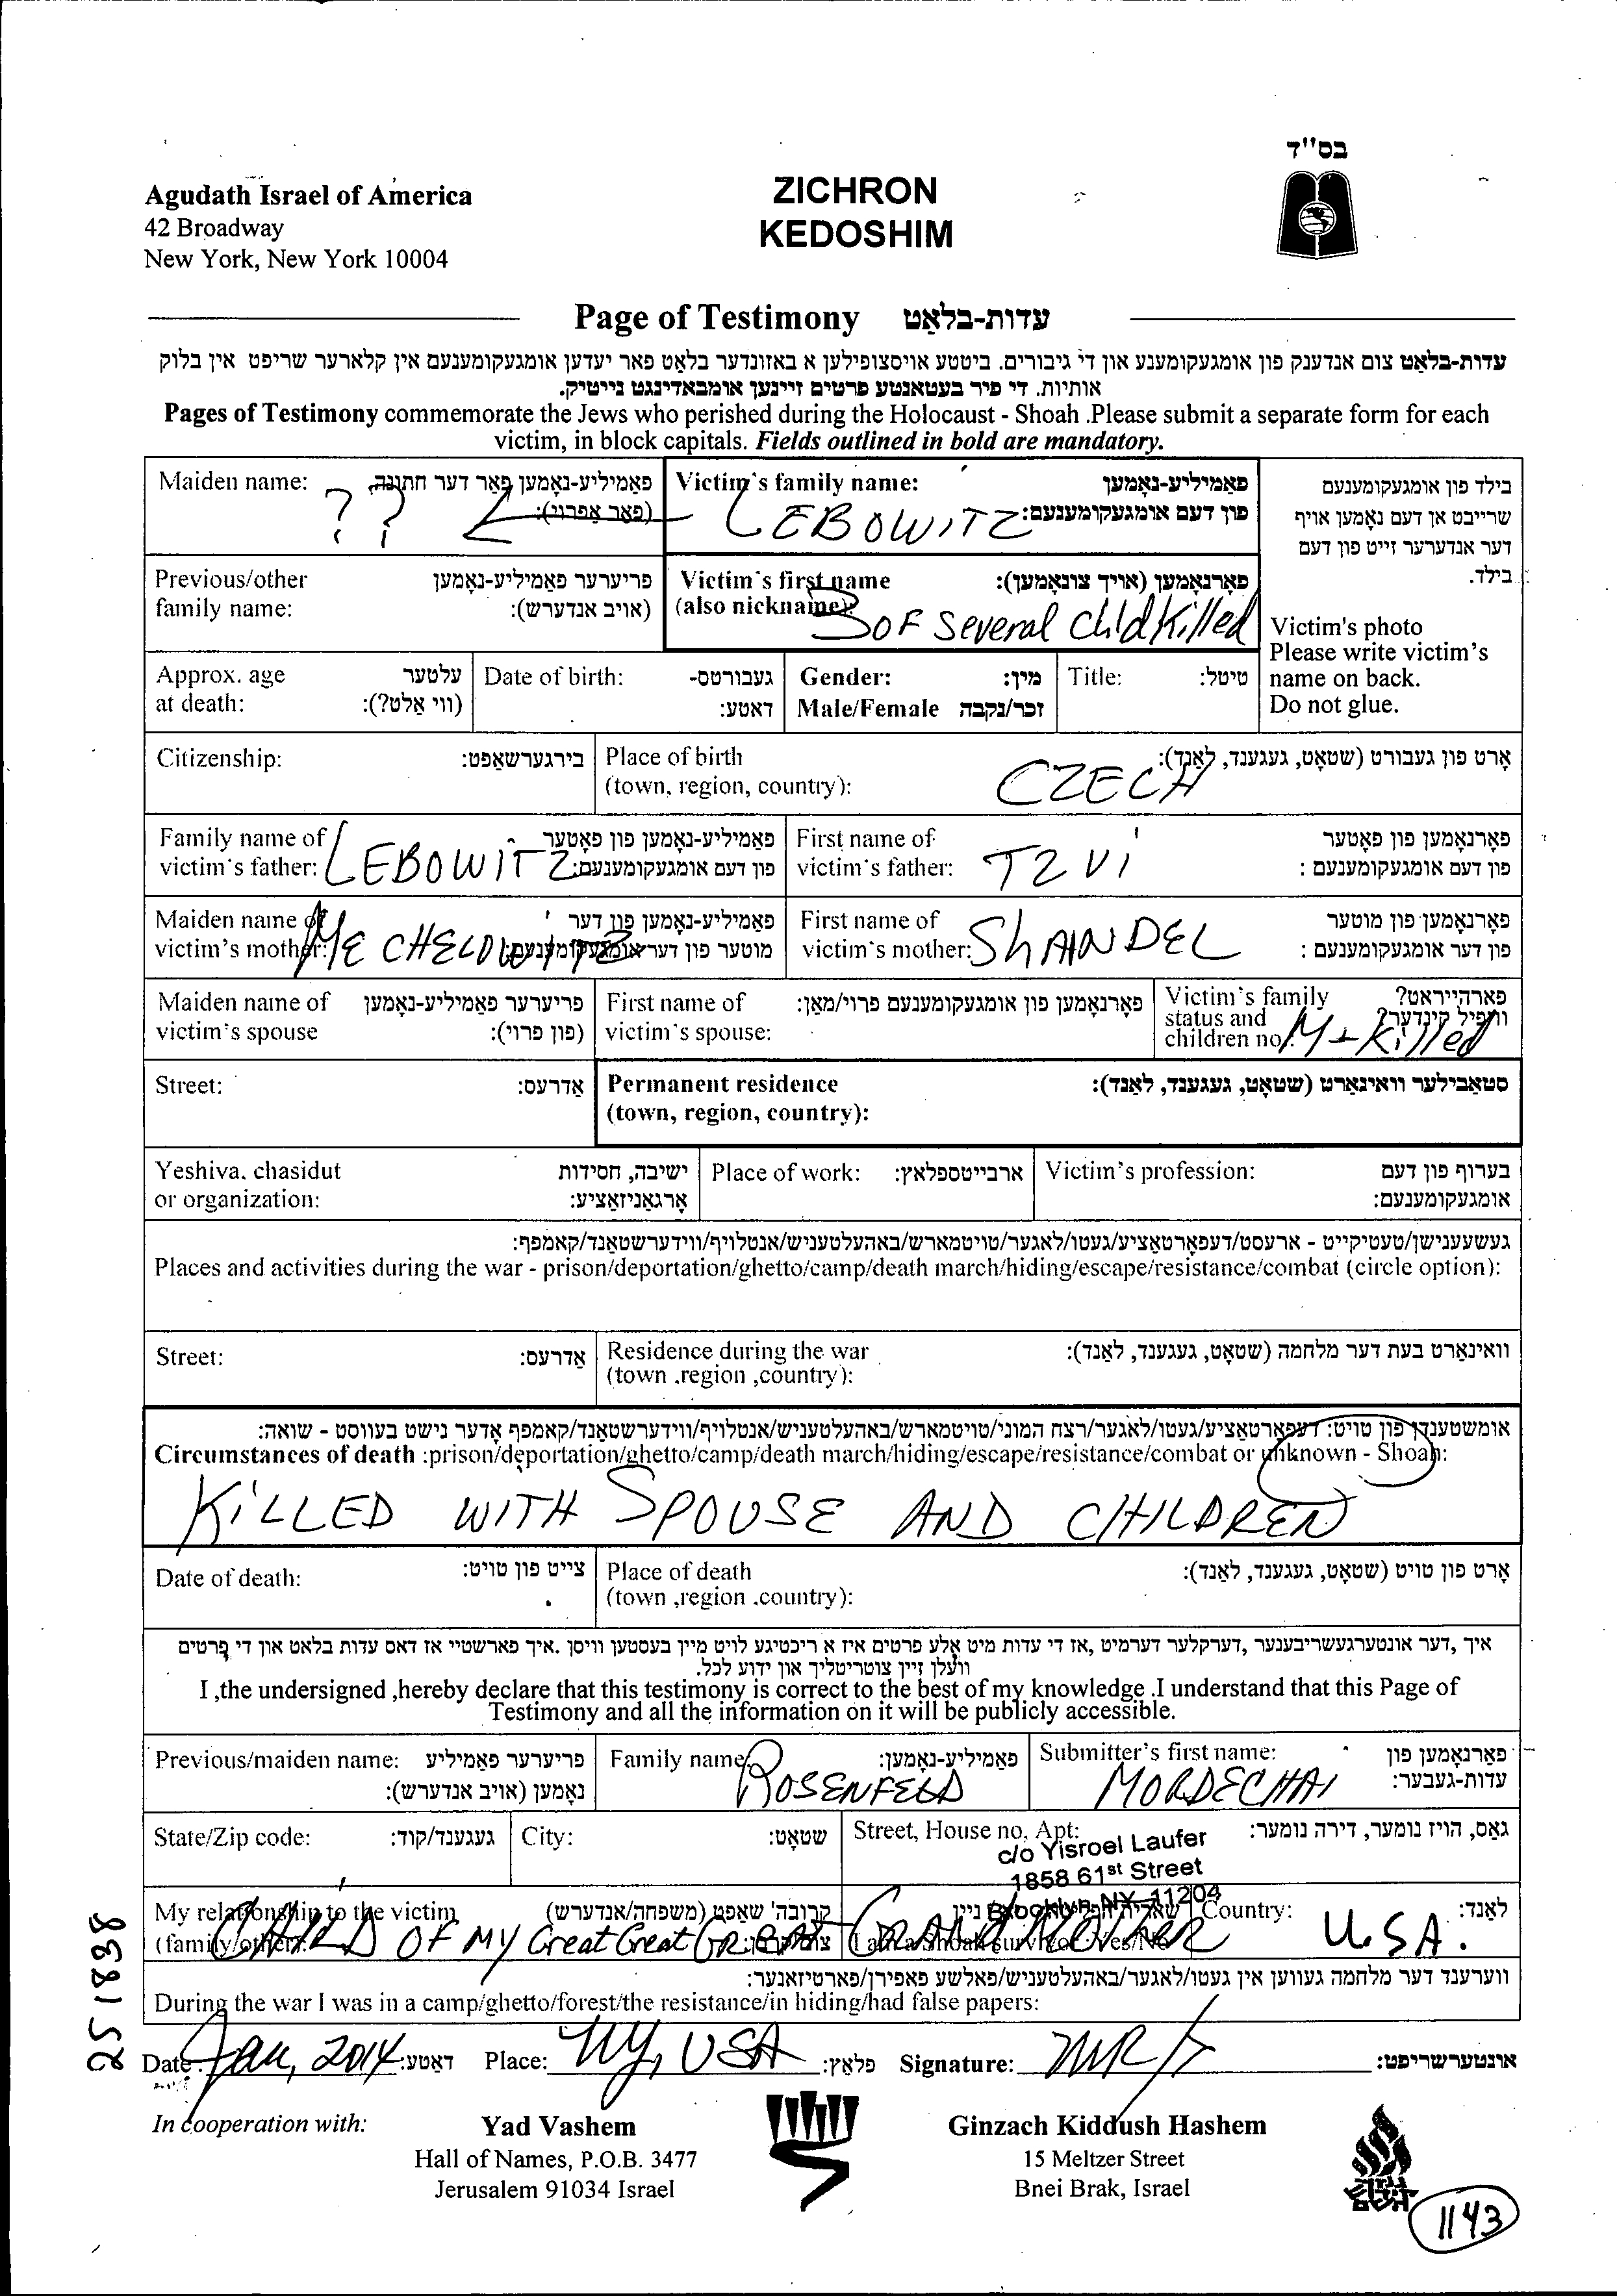 בס"ד
Agudath Israel of America
42 Broadway
New York, New York 10004
ZICHRON
KEDOSHIM
Page of Testimony עדות-בלאַט
עדות-בלאַט צום אנדענק פון אומגעקומענע און די גיבורים. ביטטע אויסצופילען א באזונדער בלאַט פאר יעדען אומגעקומענעם אין קלארער שריפט אין בלוק
אותיות. די פיר בעטאנטע פרטים זיינען אומבאדינגט נייטיק.
Pages of Testimony commemorate the Jews who perished during the Holocaust - Shoah .Please submit a separate form for each
victim, in block capitals. Fields outlined in bold are mandatory.
Maiden name: פאַמיליע-נאָמען פאַר דער חתונה
(פאר אַפרוי):
? ?
Victim's family name: פאַמיליע-נאָמען
פון דעם אומגעקומענעם:
LEBOWITZ
בילד פון אומגעקומענעם
שרייבט אן דעם נאָמען אויף
דער אנדערער זייט פון דעם
בילד.
Victim's photo
Please write victim's
name on back.
Do not glue.
Previous/other פריערער פאַמיליע-נאָמען
family name: (אויב אנדערש):
Victim's first name פאָרנאָמען (אויך צונאָמען):
(also nickname):
3 OF several child Killed
Approx. age עלטער
at death: (ווי אַלט?):
Date of birth: געבורטס-
דאטע:
Gender: מין:
Male/Female זכר/נקבה
Title: טיטל:
Citizenship: בירגערשאַפט:
Place of birth אָרט פון געבורט (שטאָט, געגענד, לאַנד):
(town, region, country):
CZECH
Family name of פאַמיליע-נאָמען פון פאָטער
victim's father: פון דעם אומגעקומענעם:
LEBOWITZ
First name of פאָרנאָמען פון פאָטער
victim's father: פון דעם אומגעקומענעם :
TZVI
Maiden name of פאַמיליע-נאָמען פון דער
victim's mother: מוטער פון דער אומגעקומענעם:
MECHELOWITZ
First name of פאָרנאָמען פון מוטער
victim's mother: פון דער אומגעקומענעם :
ShAINDEL
Maiden name of פריערער פאַמיליע-נאָמען
victim's spouse (פון פרוי):
First name of פאָרנאָמען פון אומגעקומענעם פרוי/מאַן:
victim's spouse:
Victim's family פארהייראט?
status and וויפיל קינדער?
children no.:
M + Killed
Street: אַדרעס:
Permanent residence סטאַבילער וואוינאָרט (שטאָט, געגענד, לאַנד):
(town, region, country):
Yeshiva, chasidut ישיבה, חסידות
or organization: אָרגאַניזאַציע:
Place of work: ארבייטספלאץ:
Victim's profession: בערוף פון דעם
אומגעקומענעם:
געשעענישן/טעטיקייט - ארעסט/דעפאָרטאַציע/געטו/לאַגער/טויטמארש/באהעלטעניש/אנטלויף/ווידערשטאַנד/קאמפף:
Places and activities during the war - prison/deportation/ghetto/camp/death march/hiding/escape/resistance/combat (circle option):
Street: אַדרעס:
Residence during the war וואוינאָרט בעת דער מלחמה (שטאָט, געגענד, לאַנד):
(town ,region ,country):
אומשטענדן פון טויט: דעפאָרטאַציע/געטו/לאַגער/רצח המוני/טויטמארש/באהעלטעניש/אנטלויף/ווידערשטאַנד/קאמפף אָדער נישט בעווסט - שואה:
Circumstances of death :prison/deportation/ghetto/camp/death march/hiding/escape/resistance/combat or unknown - Shoah:
KiLLED WITH SPOUSE AND CHILDREN
Date of death: צייט פון טויט:
Place of death אָרט פון טויט (שטאָט, געגענד, לאַנד):
(town ,region ,country):
איך ,דער אונטערגעשריבענער ,דערקלער דערמיט ,אז די עדות מיט אלע פרטים איז א ריכטיגע לויט מיין בעסטען וויסן .איך פארשטיי אז דאס עדות בלאט און די פרטים
וועלן זיין צוטריטליך און ידוע לכל.
I ,the undersigned ,hereby declare that this testimony is correct to the best of my knowledge .I understand that this Page of
Testimony and all the information on it will be publicly accessible.
Previous/maiden name: פריערער פאַמיליע
נאָמען (אויב אנדערש):
Family name: פאַמיליע-נאָמען:
ROSENFELD
Submitter's first name: פאָרנאָמען פון
עדות-געבער:
MORDECHAI
State/Zip code: געגענד/קוד:
City: שטאָט:
Street, House no, Apt: גאַס, הויז נומער, דירה נומער:
c/o Yisroel Laufer
1858 61st Street
Brooklyn NY 11204
My relationship to the victim קרובה'שאַפט (משפחה/אנדערש)
(family/other):
CHILD OF MY Great Great GREAT GRANDMOTHER
I am a Shoah survivor: Yes/No
Country: לאַנד:
U.S.A.
ווערענד דער מלחמה געווען אין געטו/לאַגער/באהעלטעניש/פאלשע פאפירן/פארטיזאנער:
During the war I was in a camp/ghetto/forest/the resistance/in hiding/had false papers:
Date: Jan, 2014 דאַטע: Place: NY, USA פלאַץ: Signature: אונטערשריפט:
In cooperation with:
Yad Vashem
Hall of Names, P.O.B. 3477
Jerusalem 91034 Israel
Ginzach Kiddush Hashem
15 Meltzer Street
Bnei Brak, Israel
1143
251838